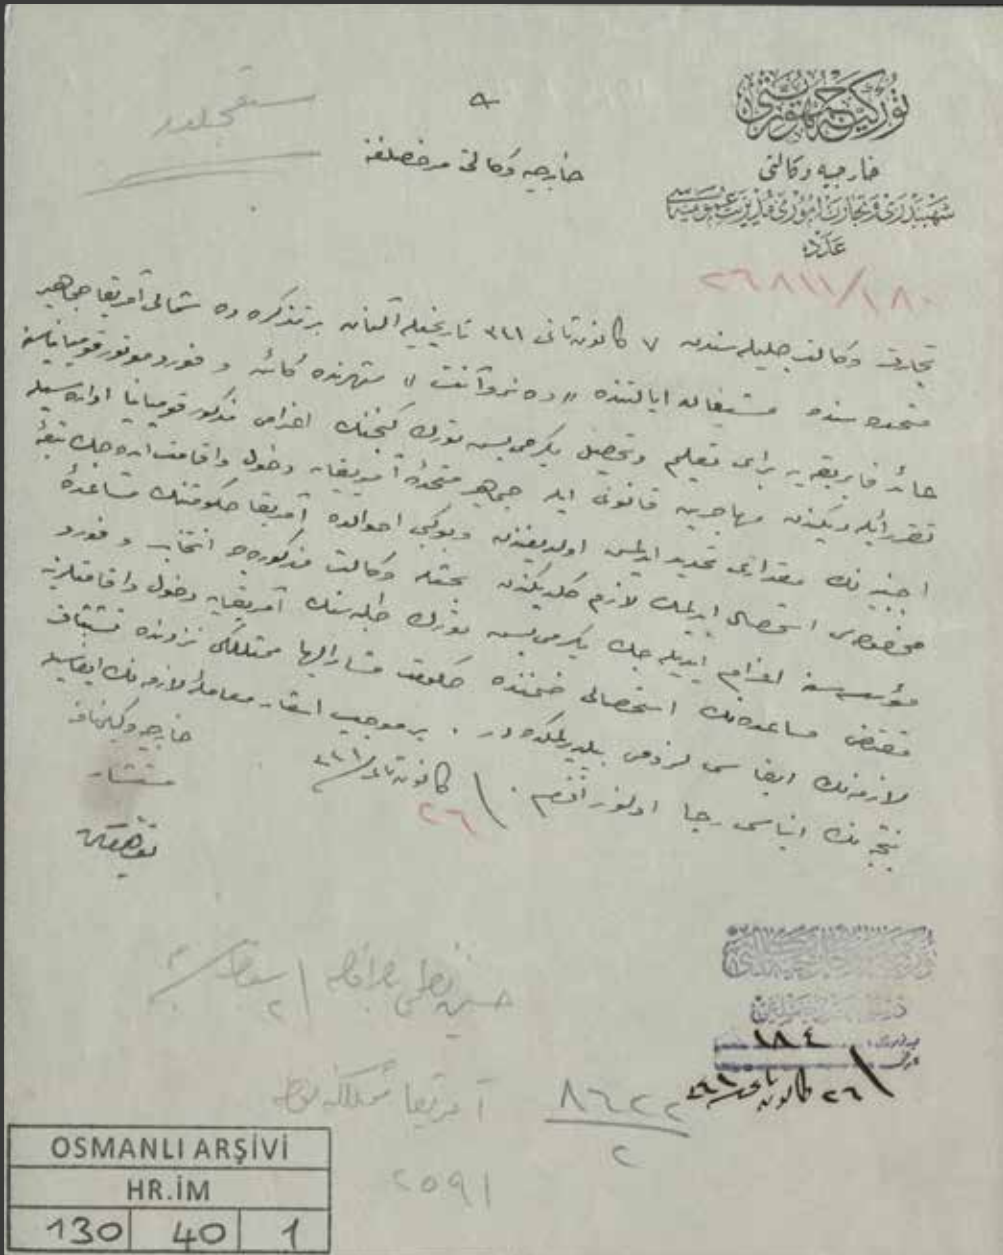 توركيه جمهوريتى
خارجيه وكالتى
شهبندرى و تجارت امورى مديريت عموميه سى
عدد
٢٦٨١١/١٨٠
مستعجلدر
خارجيه وكالتى مرخصلغنه
تجارت وكالت جليله سندن ٧ كانون ثانى ٣٤١ تاريخيله آلنان بر تذكره ده شمالى آمريقا جماهير
متحده سنده ميشيغان ايالتنده "ده تروآئت" شهرنده كائن و فورد موتور قومپانياسنه
عائد فابريقه يه براى تعليم و تحصيل يكرمى بش تورك كنجنك اعزامى مذكور قومپانيا اداره سيله
تقرر ايله ديكندن مهاجرين قانونى ايله جماهير متحدۀ آمريقايه دخول و اقامت ايده جك تبعۀ
اجنبيه نك مقدارى تحديد ايدلمش اولديغندن و بوكبى احوالده آمريقا حكومتنك مساعدۀ
مخصوصه سى استحصال ايدلمك لازم كلديكندن بحثله وكالت مذكوره جه انتخاب و فورد
مؤسسه سنه اعزام ايديله جك يكرمى بش تورك طلبه سنك آمريقايه دخول و اقامتلرينه
مقتضى مساعده نك استحصالى ضمننده حكومت مشاراليها ممثللكى نزدنده تشبثات
لازمه نك ايفاسى لزومى بيلديرلمكده در . برموجب اشعار معاملۀ لازمه نك ايفاسيله
نتيجه نك انباسى رجا اولنور افندم . ٢٦ كانون ثانى ٣٤١
خارجيه وكيلى نامنه
مستشار
١٨٤
٢٦ كانون ثانى ٣٤١
٨٦٢٢
٢
٢٥٩١
OSMANLI ARŞİVİ
HR.İM
130 40 1